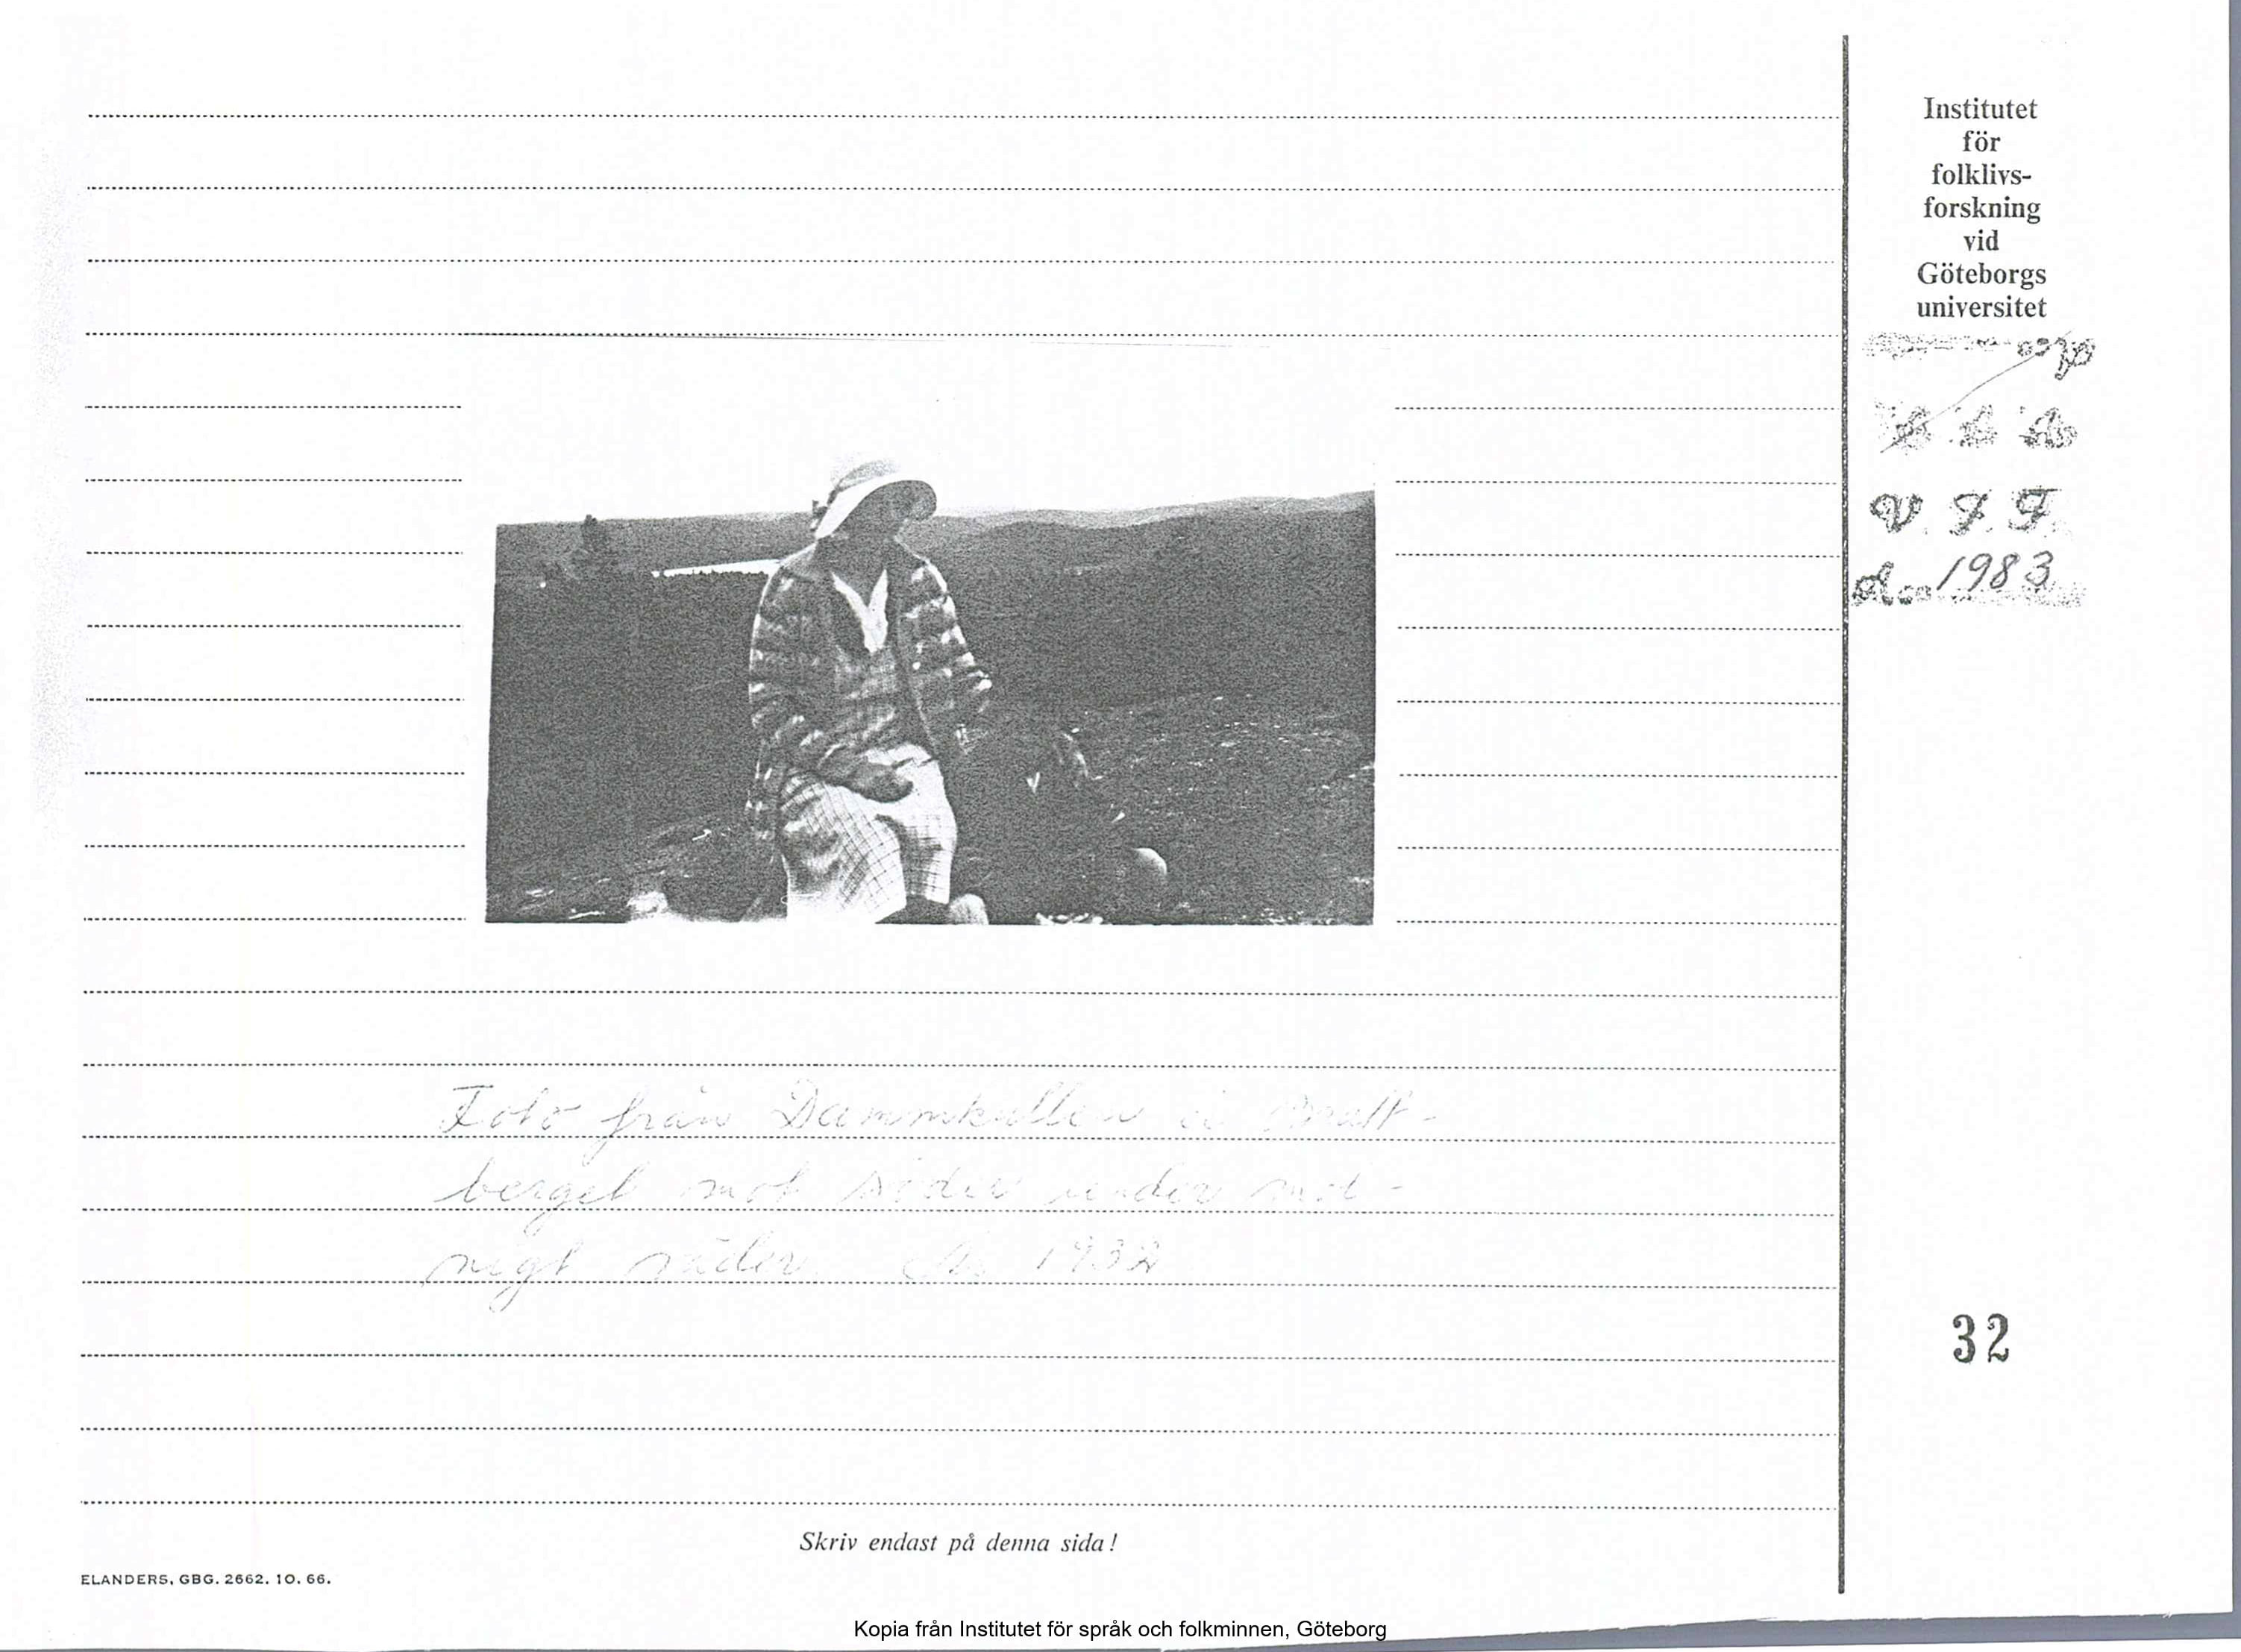 Institutet
för
folklivs-
forskning
vid
Göteborgs
universitet
V. F. F.
1983
Foto från Dammkullen i Bratt-
berget mot söder under mol-
nigt väder. År 1932
32
Skriv endast på denna sida!
ELANDERS, GBG. 2662. 10. 66.
Kopia från Institutet för språk och folkminnen, Göteborg